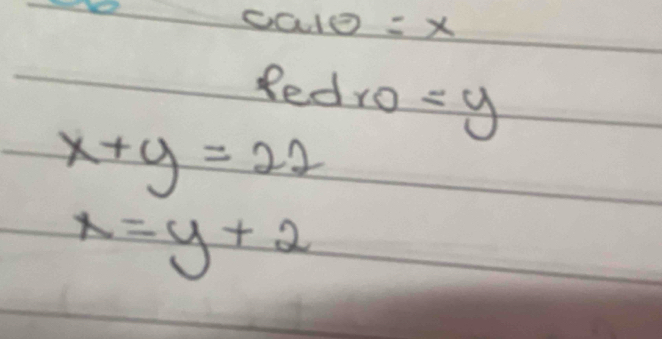 caio = x
Pedro = y
x + y = 22
x = y + 2